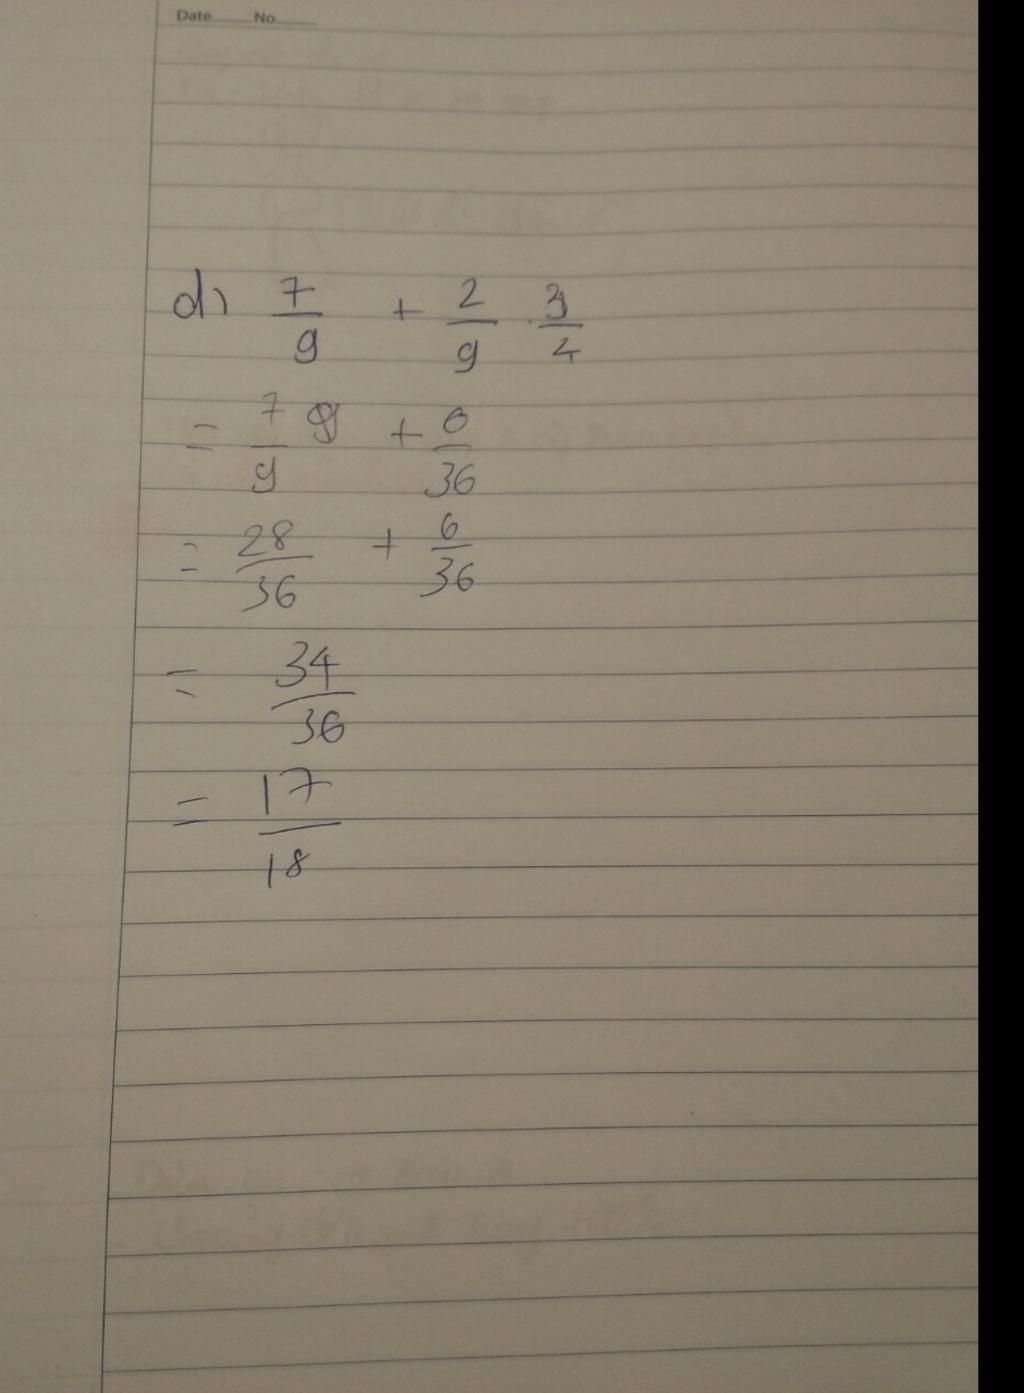 Date No.
d) 7/9 + 2/9 . 3/4
= 7/9 + 6/36
= 28/36 + 6/36
= 34/36
= 17/18